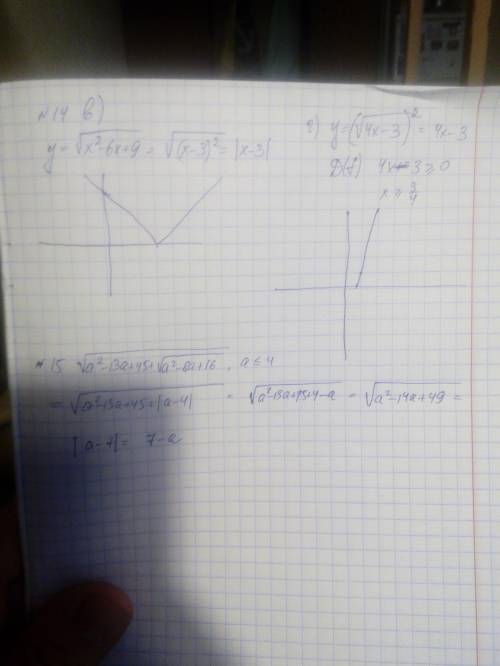 №14 в)
y=√(x²-6x+9) = √((x-3)²) = |x-3|
г) y=(√(4x-3))² = 4x-3
D(f) 4x-3≥0
x≥3/4
№15 √(a²-13a+45+√(a²-8a+16)), a≤4
= √(a²-13a+45+|a-4|) = √(a²-13a+45+4-a) = √(a²-14a+49) =
|a-7| = 7-a